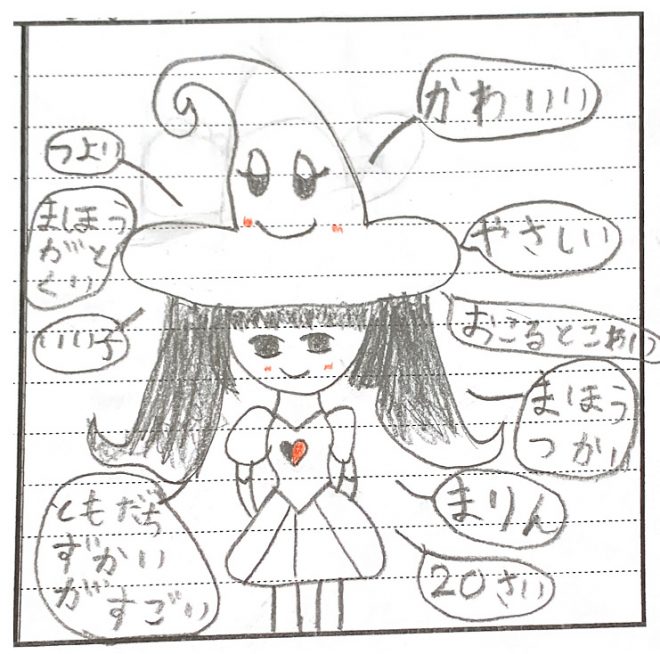 かわいい
つよい
まほう
がと
くい
やさしい
いい子
おこるとこわい
まほう
つかい
ともだち
ずかい
がすごい
まりん
20さい